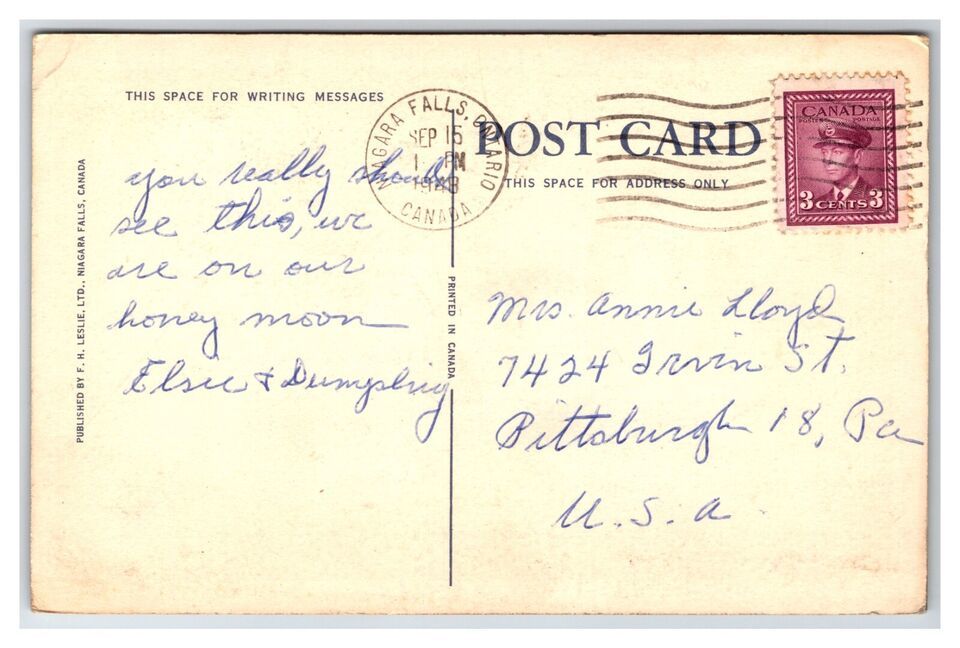 THIS SPACE FOR WRITING MESSAGES
you really should
see this, we
are on our
honey moon
Elsie & Dumpling
PUBLISHED BY F. H. LESLIE, LTD., NIAGARA FALLS, CANADA
PRINTED IN CANADA
NIAGARA FALLS, ONTARIO
SEP 15
1 PM
1948
CANADA
POST CARD
THIS SPACE FOR ADDRESS ONLY
CANADA
POSTES POSTAGE
3 CENTS 3
Mrs. Annie Lloyd
7424 Irvin St.
Pittsburgh 18, Pa
U. S. A.